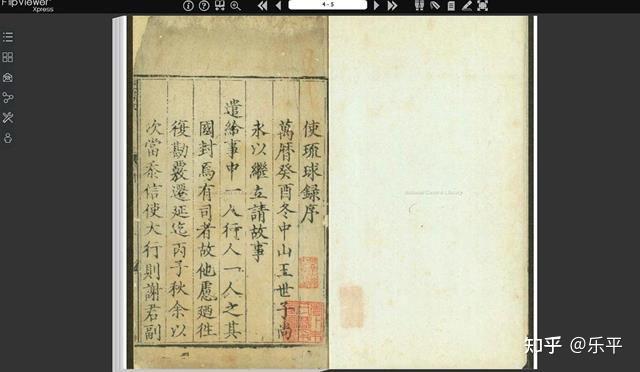 FlipViewer
Xpress
4 - 5
使琉球錄序
萬曆癸酉冬中山王世子尚
永以繼立請故事
遣給事中一人行人一人之其
國封焉有司者故他慮廼往
復勘覈遷延迄丙子秋余以
次當忝信使大行則謝君副
National Central Library
知乎 @乐平